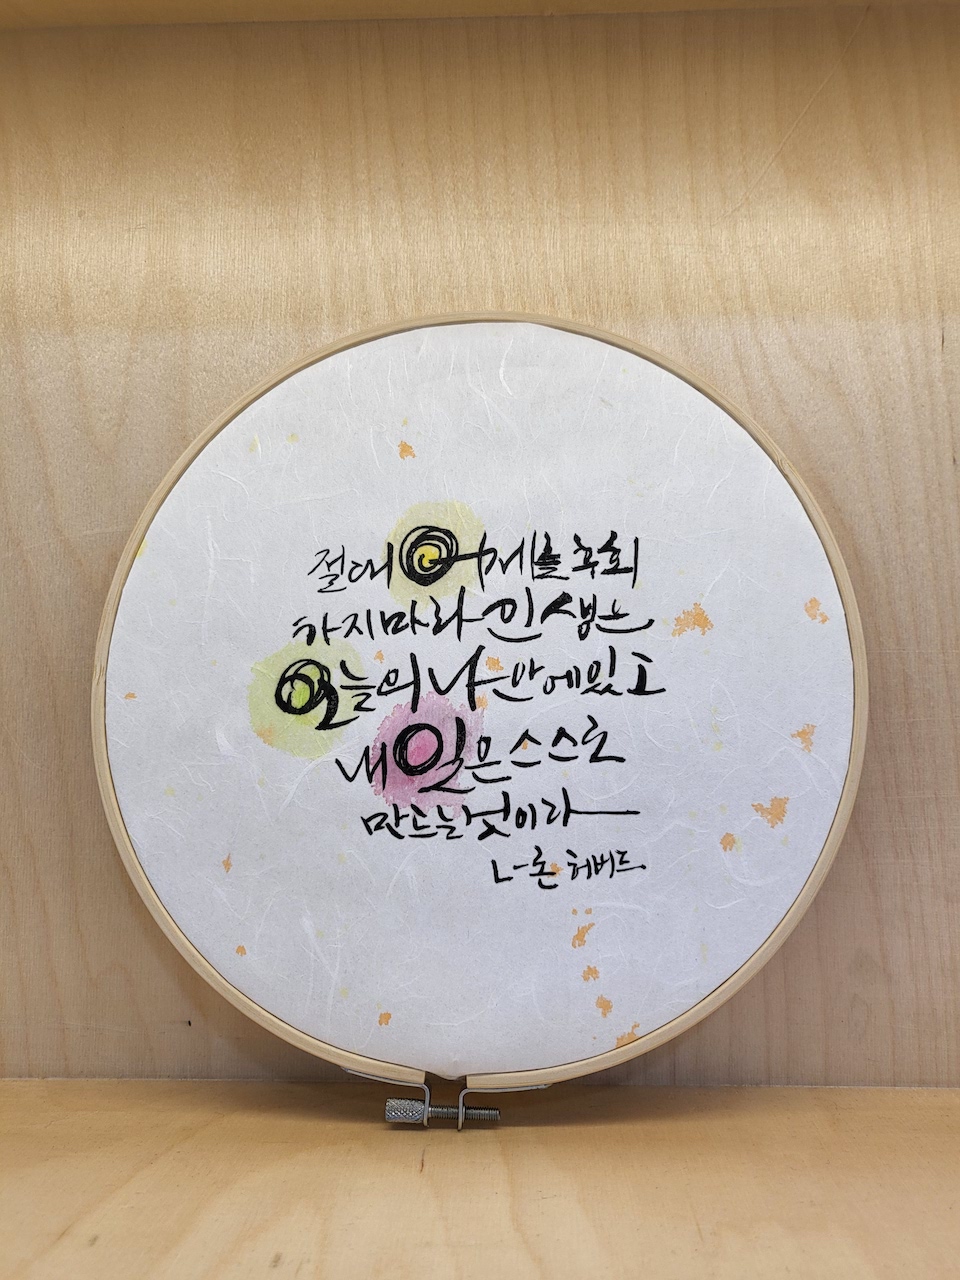 절대 어제를 추회
하지마라 인생은
오늘의 나 안에 있고
내일은 스스로
만드는 것이라
나론 허버드